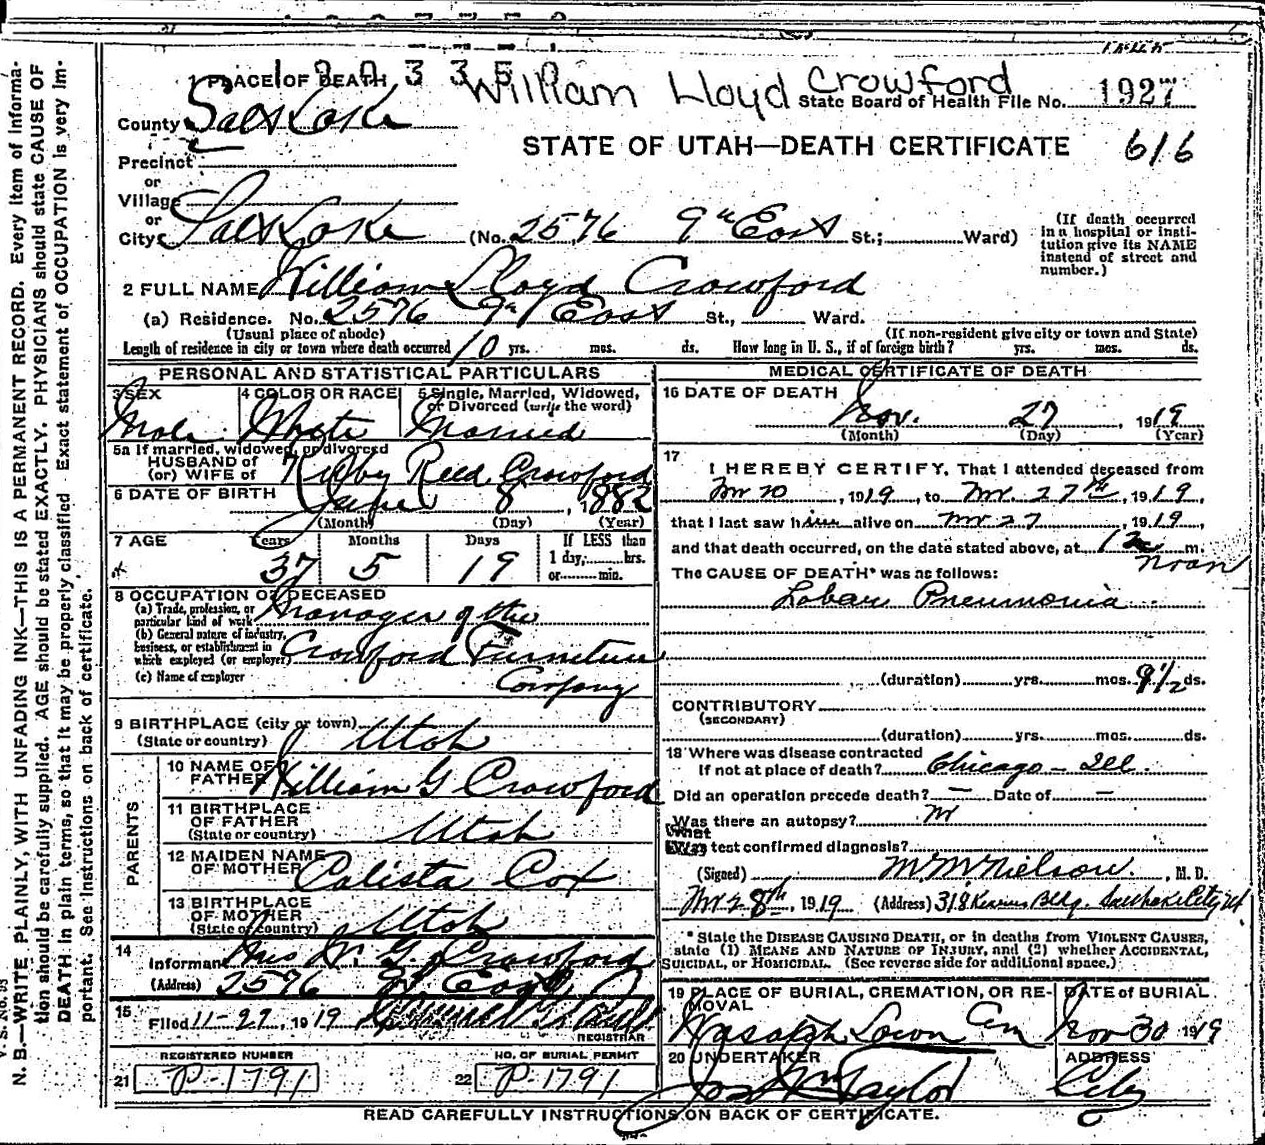 1 PLACE OF DEATH
William Lloyd Crawford
State Board of Health File No. 1927
County Salt Lake
STATE OF UTAH—DEATH CERTIFICATE 616
Precinct
or
Village
or
City Salt Lake (No. 2576 9th East St.; Ward)
(If death occurred in a hospital or institution give its NAME instead of street and number.)
2 FULL NAME William Lloyd Crawford
(a) Residence. No. 2576 9th East St., Ward.
(Usual place of abode) (If non-resident give city or town and State)
Length of residence in city or town where death occurred 10 yrs. mos. ds. How long in U. S., if of foreign birth? yrs. mos. ds.
PERSONAL AND STATISTICAL PARTICULARS
3 SEX 4 COLOR OR RACE 5 Single, Married, Widowed, or Divorced (write the word)
Male White Married
5a If married, widowed, or divorced
HUSBAND of
(or) WIFE of Reed Crawford
6 DATE OF BIRTH June 8, 1882
(Month) (Day) (Year)
7 AGE Years Months Days If LESS than
37 5 19 1 day, hrs.
or min.
8 OCCUPATION OF DECEASED
(a) Trade, profession, or particular kind of work Manager of the
(b) General nature of industry, business, or establishment in which employed (or employer) Crawford Furniture
(c) Name of employer Company
9 BIRTHPLACE (city or town)
(State or country) Utah
PARENTS
10 NAME OF FATHER William G Crawford
11 BIRTHPLACE OF FATHER
(State or country) Utah
12 MAIDEN NAME OF MOTHER Calista Cox
13 BIRTHPLACE OF MOTHER
(State or country) Utah
14 Informant Mrs W. G. Crawford
(Address) 2576 9 East
15 Filed 11-29, 1919
REGISTRAR
REGISTERED NUMBER NO. OF BURIAL PERMIT
21 P-1791 22 P-1791
MEDICAL CERTIFICATE OF DEATH
16 DATE OF DEATH
Nov. 27, 1919
(Month) (Day) (Year)
17 I HEREBY CERTIFY, That I attended deceased from
Nov 20, 1919, to Nov. 27th, 1919,
that I last saw him alive on Nov 27, 1919,
and that death occurred, on the date stated above, at 12 m.
noon
The CAUSE OF DEATH* was as follows:
Lobar Pneumonia
(duration) yrs. mos. 9½ ds.
CONTRIBUTORY
(SECONDARY)
(duration) yrs. mos. ds.
18 Where was disease contracted
If not at place of death? Chicago - Ill.
Did an operation precede death? — Date of —
Was there an autopsy? no
What test confirmed diagnosis?
(Signed) M M Nielson, M. D.
Nov 28th, 1919 (Address) 318 Kearns Bldg. Salt Lake City Ut
* State the DISEASE CAUSING DEATH, or in deaths from VIOLENT CAUSES, state (1) MEANS AND NATURE OF INJURY, and (2) whether ACCIDENTAL, SUICIDAL, or HOMICIDAL. (See reverse side for additional space.)
19 PLACE OF BURIAL, CREMATION, OR REMOVAL DATE of BURIAL
Wasatch Lawn Cem Nov 30 1919
20 UNDERTAKER ADDRESS
Jos Wm Taylor City
READ CAREFULLY INSTRUCTIONS ON BACK OF CERTIFICATE.
V. S. No. 
N. B.—WRITE PLAINLY, WITH UNFADING INK—THIS IS A PERMANENT RECORD. Every item of information should be carefully supplied. AGE should be stated EXACTLY. PHYSICIANS should state CAUSE OF DEATH in plain terms, so that it may be properly classified. Exact statement of OCCUPATION is very important. See instructions on back of certificate.